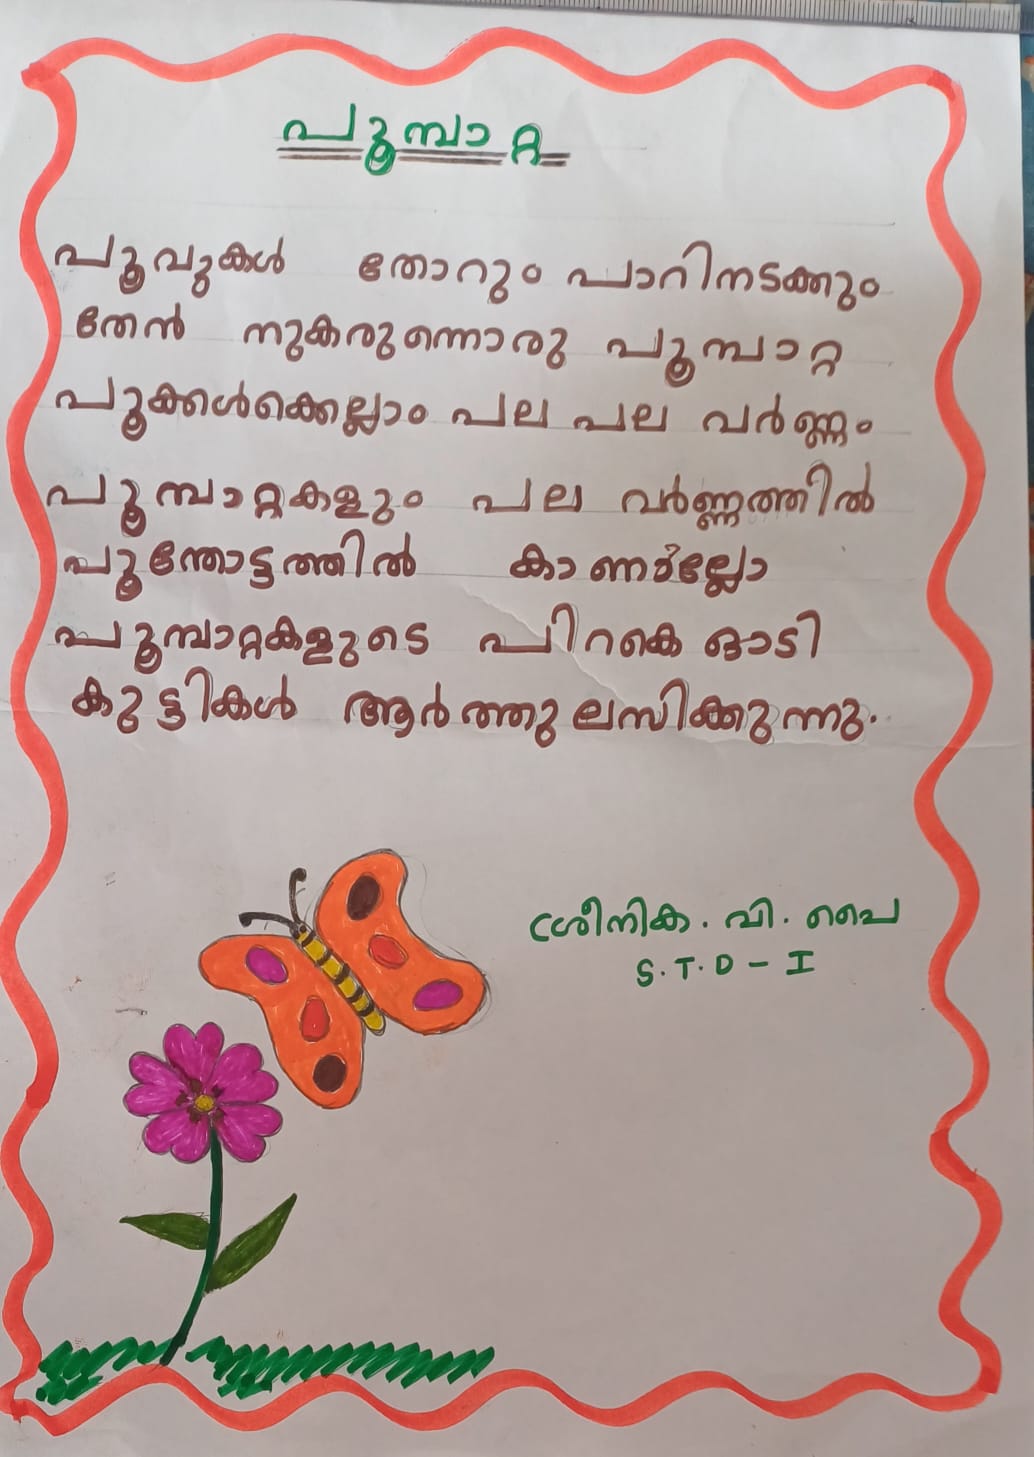 പൂമ്പാറ്റ
പൂവുകൾ തോറും പാറിനടക്കും
തേൻ നുകരുന്നൊരു പൂമ്പാറ്റ
പൂക്കൾക്കെല്ലാം പല പല വർണ്ണം
പൂമ്പാറ്റകളും പല വർണ്ണത്തിൽ
പൂന്തോട്ടത്തിൽ കാണാല്ലോ
പൂമ്പാറ്റകളുടെ പിറകെ ഓടി
കുട്ടികൾ ആർത്തുലസിക്കുന്നു.
ശ്രീനിക. വി. പൈ
S.T.D - I